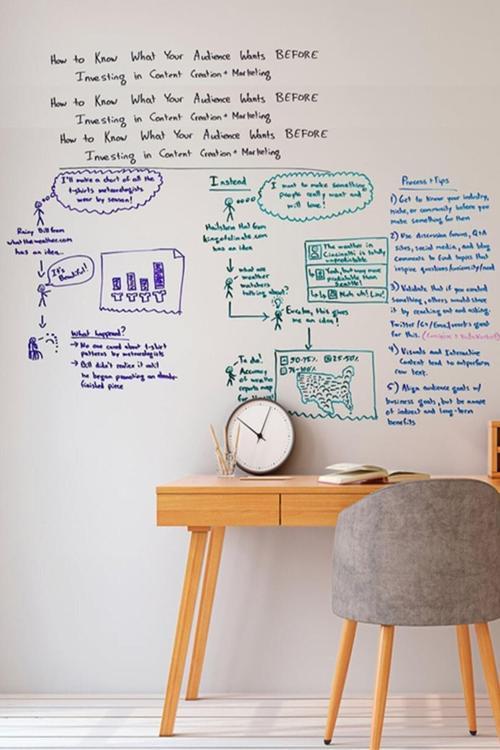 How to Know What Your Audience Wants BEFORE
Investing in Content Creation + Marketing
How to Know What Your Audience Wants BEFORE
Investing in Content Creation + Marketing
How to Know What Your Audience Wants BEFORE
Investing in Content Creation + Marketing
I'll make a chart of all the
t-shirts meteorologists
wear by season!
Rainy Bill from
whattheweather.com
has an idea...
It's
Beautiful!
What happened?
→ No one cared about t-shirt
patterns by meteorologists
→ Bill didn't realize it until
he began promoting an already-
finished piece
Instead
I want to make something
people really want and
will love!
Hailstorm Hal from
kingofclimate.com
has an idea
what are
weather
watchers
talking about?
The weather in
Cincinnati is totally
unpredictable
Yeah, but more
predictable than
Seattle!
Nuh uh! Liar!
Eureka, this gives
me an idea!
To do:
Accuracy
of weather
reports map
50-75%
25-50%
76-100%
Process + Tips
1) Get to know your industry,
niche, or community before you
make something for them
2) Use discussion forums, Q+A
sites, social media, and blog
comments to find topics that
inspire questions/curiosity/need
3) Validate that if you created
something, others would share
it by reaching out and asking.
Twitter/G+/Email work great
for this.
4) Visuals and Interactive
Content tend to outperform
raw text.
5) Align audience goals w/
business goals, but be aware
of indirect and long-term
benefits